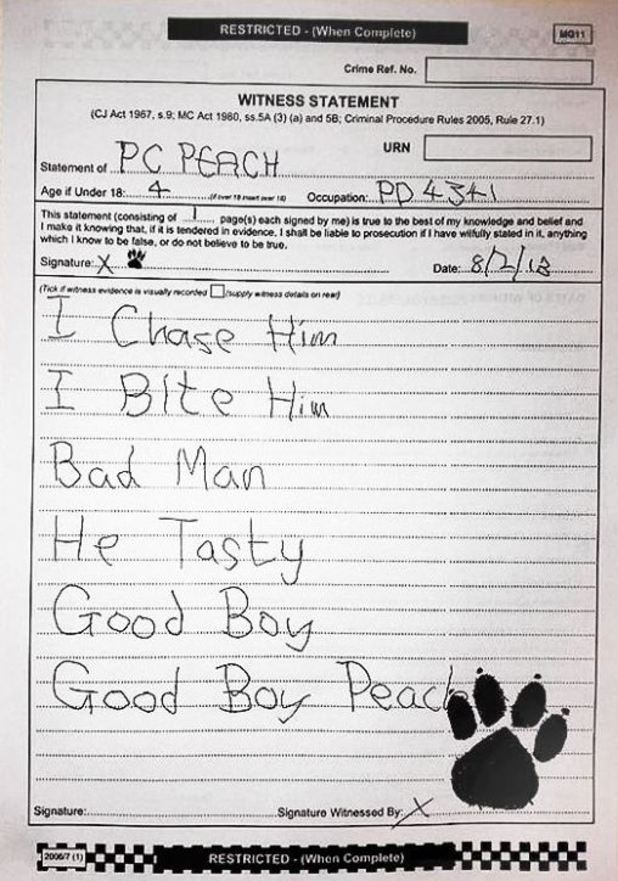 RESTRICTED - (When Complete)
MG11
Crime Ref. No.
WITNESS STATEMENT
(CJ Act 1967, s.9; MC Act 1980, ss.5A (3) (a) and 5B; Criminal Procedure Rules 2005, Rule 27.1)
URN
Statement of PC PEACH
Age if Under 18: 4 (if over 18 insert over 18) Occupation: PD 4341
This statement (consisting of 1 page(s) each signed by me) is true to the best of my knowledge and belief and
I make it knowing that, if it is tendered in evidence, I shall be liable to prosecution if I have wilfully stated in it, anything
which I know to be false, or do not believe to be true.
Signature: X Date: 8/2/13
(Tick if witness evidence is visually recorded (supply witness details on rear)
I Chase Him
I Bite Him
Bad Man
He Tasty
Good Boy
Good Boy Peach
Signature: Signature Witnessed By: X
2006/7 (1)
RESTRICTED - (When Complete)